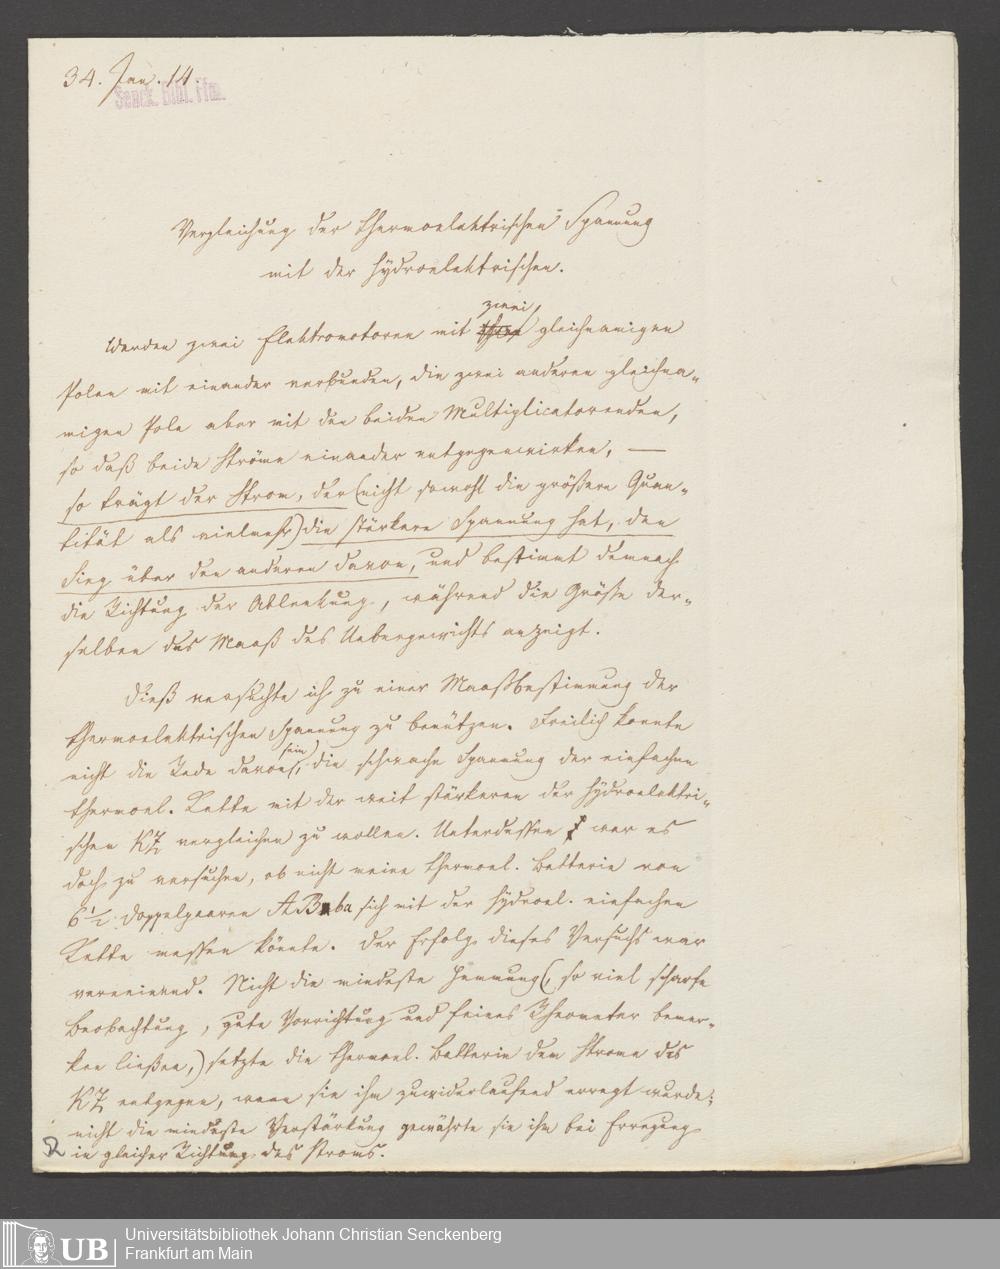 34. Jan. 14.
Senck. Bibl. Ffm.
Vergleichung der thermoelektrischen Spannung
mit der hydroelektrischen.
zwei
Werden zwei Elektromotoren mit gleichnamigen
Polen mit einander verbunden, die zwei anderen gleichna-
migen Pole aber mit den beiden Multiplicatorenden,
so daß beide Ströme einander entgegenwirken, —
so trägt der Strom, der (nicht sowohl die größere Quan-
tität als vielmehr) die stärkere Spannung hat, den
Sieg über den anderen davon, und bestimmt demnach
die Richtung der Ablenkung, während die Größe der-
selben das Maaß des Uebergewichts anzeigt.
Dieß versuchte ich zu einer Maaßbestimmung der
thermoelektrischen Spannung zu benützen. Freilich konnte
sein,
nicht die Rede davon, die schwache Spannung der einfachen
thermoel. Kette mit der weit stärkeren der hydroelektri-
schen KZ vergleichen zu wollen. Unterdessen war es
doch zu versuchen, ob nicht meine thermoel. Batterie von
6½ Doppelpaaren A ba sich mit der hydroel. einfachen
Kette messen könnte. Der Erfolg dieses Versuchs war
verneinend. Nicht die mindeste Hemmung (, so viel scharfe
Beobachtung, gute Vorrichtung und feines Rheometer bemer-
ken ließen,) setzte die thermoel. Batterie dem Strome des
KZ entgegen, wenn sie ihm zuwiderlaufend erregt wurde;
nicht die mindeste Verstärkung gewährte sie ihm bei Erregung
in gleicher Richtung des Stroms.
UB
Universitätsbibliothek Johann Christian Senckenberg
Frankfurt am Main